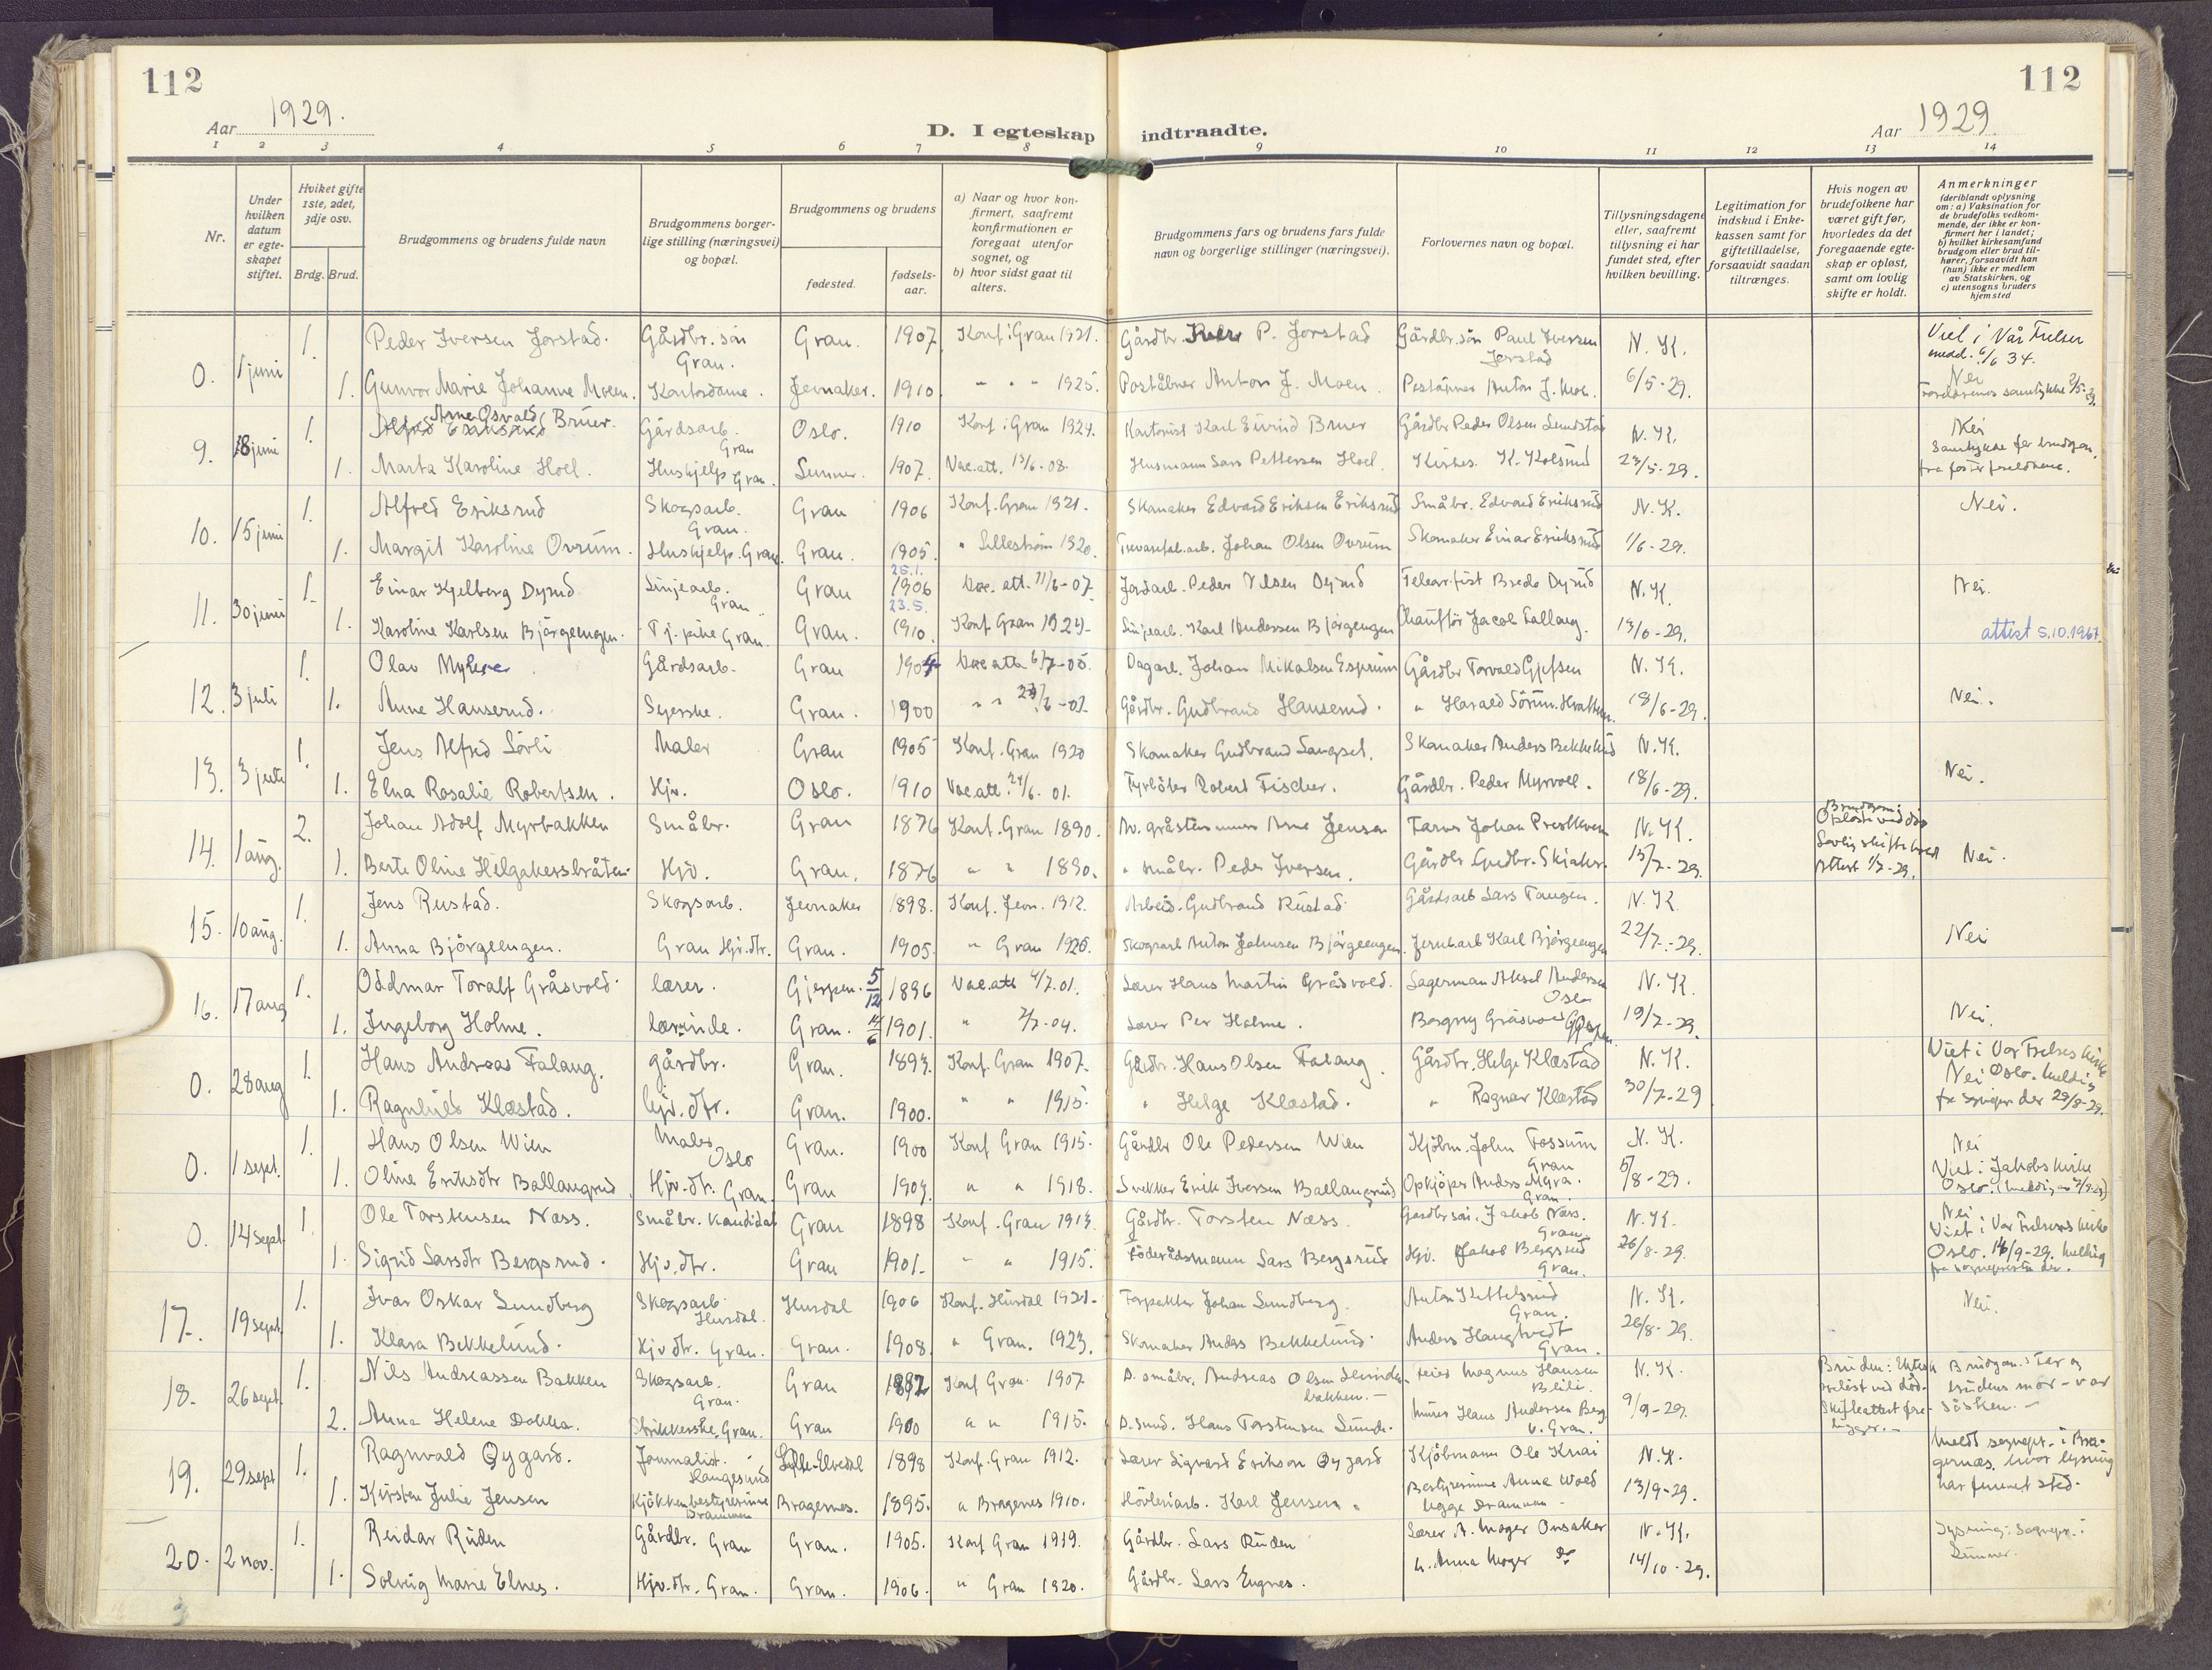 112
112
Aar 1929.
D. I egteskap indtraadte.
Aar 1929.
1 2 3 4 5 6 7 8 9 10 11 12 13 14
Nr.
Under hvilken datum er egteskapet stiftet.
Hviket gifte 1ste, 2det, 3dje osv.
Brdg. Brud.
Brudgommens og brudens fulde navn
Brudgommens borgerlige stilling (næringsvei) og bopæl.
Brudgommens og brudens
fødested. fødselsaar.
a) Naar og hvor konfirmert, saafremt konfirmationen er foregaat utenfor sognet, og
b) hvor sidst gaat til alters.
Brudgommens fars og brudens fars fulde navn og borgerlige stillinger (næringsvei).
Forlovernes navn og bopæl.
Tillysningsdagene eller, saafremt tillysning ei har fundet sted, efter hvilken bevilling.
Legitimation for indskud i Enkekassen samt for giftetilladelse, forsaavidt saadan tiltrænges.
Hvis nogen av brudefolkene har været gift før, hvorledes da det foregaaende egteskap er opløst, samt om lovlig skifte er holdt.
Anmerkninger (deriblandt oplysning om: a) Vaksination for de brudefolks vedkommende, der ikke er konfirmert her i landet; b) hvilket kirkesamfund brudgom eller brud tilhører, forsaavidt han (hun) ikke er medlem av Statskirken, og c) utensogns bruders hjemsted
0. 1 juni 1. Peder Iversen Jorstad. Gårdbr. søn Gran. Gran. 1907 Konf. i Gran 1921. Gårdbr. P. Jorstad Gårdbr. søn Paul Iversen Jorstad N. K. Viet i Vår Frelser medd. 6/6 34.
1. Gunvor Marie Johanne Moen. Kontordame. Jevnaker. 1910. " " " 1925. Poståbner Anton J. Moen. Poståpner Anton J. Moen. 6/5-29. Nei Foreldrenes samtykke
9. 18 juni 1. Arne Osvald Bruer. Gårdsarb. Gran Oslo. 1910 Konf. i Gran 1924. Kontorist Karl Eivind Bruer Gårdbr. Peder Olsen N. K. Nei Samtykke for brudgom. fra fosterforeldrene.
1. Marta Karoline Hoel. Huskjelp Gran. Lunner. 1907. Vac. att. 13/6-08. Husmann Lars Pettersen Hoel. Kirkes. K. Kolsrud 23/5-29.
10. 15 juni 1. Alfred Eriksrud Skogsarb. Gran. Gran 1906 Konf. Gran 1921. Skomaker Edvard Eriksen Eriksrud Småbr. Edvard Eriksrud N. K. Nei.
1. Margit Karoline Ovrum. Huskjelp. Gran. Gran. 1905. " Lillestrøm 1920. Trevarefab.arb. Johan Olsen Ovrum Skomaker Einar Eriksrud 1/6-29.
11. 30 juni 1. Einar Kjelberg Dynud Linjearb. Gran. Gran 25.1. 1906 Vac. att. 11/6-07 Jordarb. Peder Nilsen Dynud Dynud N. K. Nei.
1. Karoline Karlsen Bjørgeengen. Tj. pike Gran. Gran. 23.5. 1910. Konf Gran 1924- Linjearb. Karl Anderssen Bjørgeengen Chauffør Jacob Fallang. 13/6-29. attest 5.10.1967.
12. 3 juli 1. Olav Myhre. Gårdsarb. Gran 1904 Vac atta 6/7-05. Dagarb. Johan Mikalsen Gårdbr Torvald Gjefsen N. K.
1. Anne Hanserud. Syerske. Gran. 1900 " " Gårdbr. Gudbrand Hanserud. " Harald Sørum. 18/6-29. Nei.
13. 3 juli 1. Jens Alfred Lørli Maler Gran 1905 Konf. Gran 1920 Skomaker Gudbrand Sangset. Skomaker Anders Bekkelund N. K.
1. Elna Rosalie Robertsen. Hjv. Oslo. 1910 Vac. att. 24/6. 01. Fyrbøter Robert Fischer. Gårdbr. Peder Myrvoll. 18/6-29. Nei.
14. 1 aug. 2. Johan Adolf Myrbakken Småbr. Gran 1876 Konf. Gran 1890. Av. gråstensmurer Arne Jensen Farver Johan N. K. Brudgom: Opløst ved død Lovlig skifte holdt Attest 1/7-29. Nei.
1. Berte Oline Helgakersbråten. Hjv. Gran. 1876 " " 1890. " småbr. Peder Iversen. Gårdbr. Gudbr. Skiaker. 15/7-29.
15. 10 aug. 1. Jens Rustad. Skogsarb. Jevnaker 1898. Konf. Jevn. 1912. Arbeid. Gudbrand Rustad. Gårdsarb Lars Tangen. N. K.
1. Anna Bjørgeengen. Gran Hjv. dtr. Gran. 1905. " Gran 1920. Skogsarb Anton Johnsen Bjørgeengen. Jernb.arb Karl Bjørgeengen 22/7-29. Nei
16. 17 aug 1. Oddmar Toralf Gråsvold. lærer. Gjerpen. 5/12 1896 Vac. att 4/7.01. Lærer Hans Martin Gråsvold. Lagerman Aksel Andersen Oslo N. K.
1. Ingeborg Holme. lærerinde. Gran. 14/6 1901. " 2/7-04. Lærer Per Holme. Borgny Gråsvold 19/7-29. Nei.
0. 28 aug 1. Hans Andreas Falang. gårdbr. Gran. 1893. Konf. Gran 1907. Gårdbr. Hans Olsen Falang. Gårdbr. Helge Klæstad N. K. Viet i Vor Frelsers kirke Oslo. Melding fra sogneprest der 29/8-29. Nei
1. Ragnhild Klæstad. hjv. dtr. Gran. 1900. " " 1915. " Helge Klæstad. " Ragnar Klæstad 30/7-29
0. 1 sept. 1. Hans Olsen Wien Maler Oslo Gran. 1900 Konf Gran 1915. Gårdbr Ole Pedersen Wien Kjøbm. John Fossum Gran N. K. Nei
1. Oline Eriksdtr Ballangrud Hjv. dtr. Gran. Gran 1904. " " 1918. Snekker Erik Iversen Ballangrud Opkjøper Anders Møra. Gran. 5/8-29. Viet i Jakobs kirke Oslo.
0. 14 sept 1. Ole Torstensen Næss. Småbr. Kandidat Gran 1898 Konf. Gran 1913. Gårdbr. Torsten Næss. Gardbr. søn. Jakob Næss. Gran. N. K. Nei Viet i Vor Frelsers kirke
1. Sigrid Larsdtr Bergsrud. Hjv. dtr. Gran 1901. " " 1915. Føderådsmann Lars Bergsrud Hjv. Jakob Bergsrud Gran. 26/8-29. Oslo. 14/9-29. Melding fra sogneprest der.
17. 19 sept. 1. Ivar Oskar Lundberg Skogsarb. Hurdal. Hurdal 1906 Konf. Hurdal 1921. Forpakter Johan Lundberg. Anton Kittelsrud Gran. N. K. Nei.
1. Klara Bekkelund. Hjv dtr. Gran. Gran. 1908. " Gran. 1923. Skomaker Anders Bekkelund. Anders Haugtvedt Gran. 26/8-29.
18. 26 sept. 1. Nils Andreassen Bakken Skogsarb. Gran. Gran 1892 Konf Gran. 1907 D. småbr. Andreas Olsen bakken.- Feier Magnus Hansen N. K. Bruden: Ekteskap opløst ved død. Brudgom.s far og brudens mor - var søsken.-
2. Anna Helene Dokka. Strikkerske, Gran. Gran 1900 " " 1915. D. smed. Hans Torstensen Lunde. Murer Hans Andersen Berg v. Gran. 9/9-29.
19. 29 sept 1. Ragnvald Øygard. Journalist. Haugesund Lille-Elvedal 1898 Konf. Gran 1912. Lærer Sigvard Erikson Øygard Kjøbmann Ole Knai N. K. Meldt sognepr. i Bragernæs. hvor lysning har funnet sted.
1. Kirsten Julie Jensen Kjøkkenbestyrerinne Drammen Bragernes. 1895. " Bragernes 1910. Høvleriarb. Karl Jensen. Bestyrerinne Anna Wold Drammen 13/9-29.
20. 2 nov. 1. Reidar Ruden Gårdbr. Gran Gran. 1905. Konf Gran 1919. Gårdbr. Lars Ruden Lærer A. Moger Onsaker N. K. Lysning: sognepr. i Lunner.
1. Solveig Marie Elnes. Hjv. dtr. Gran. Gran. 1906. " Gran 1920. Gårdbr. Lars Engnes. Anna Moger 14/10-29.